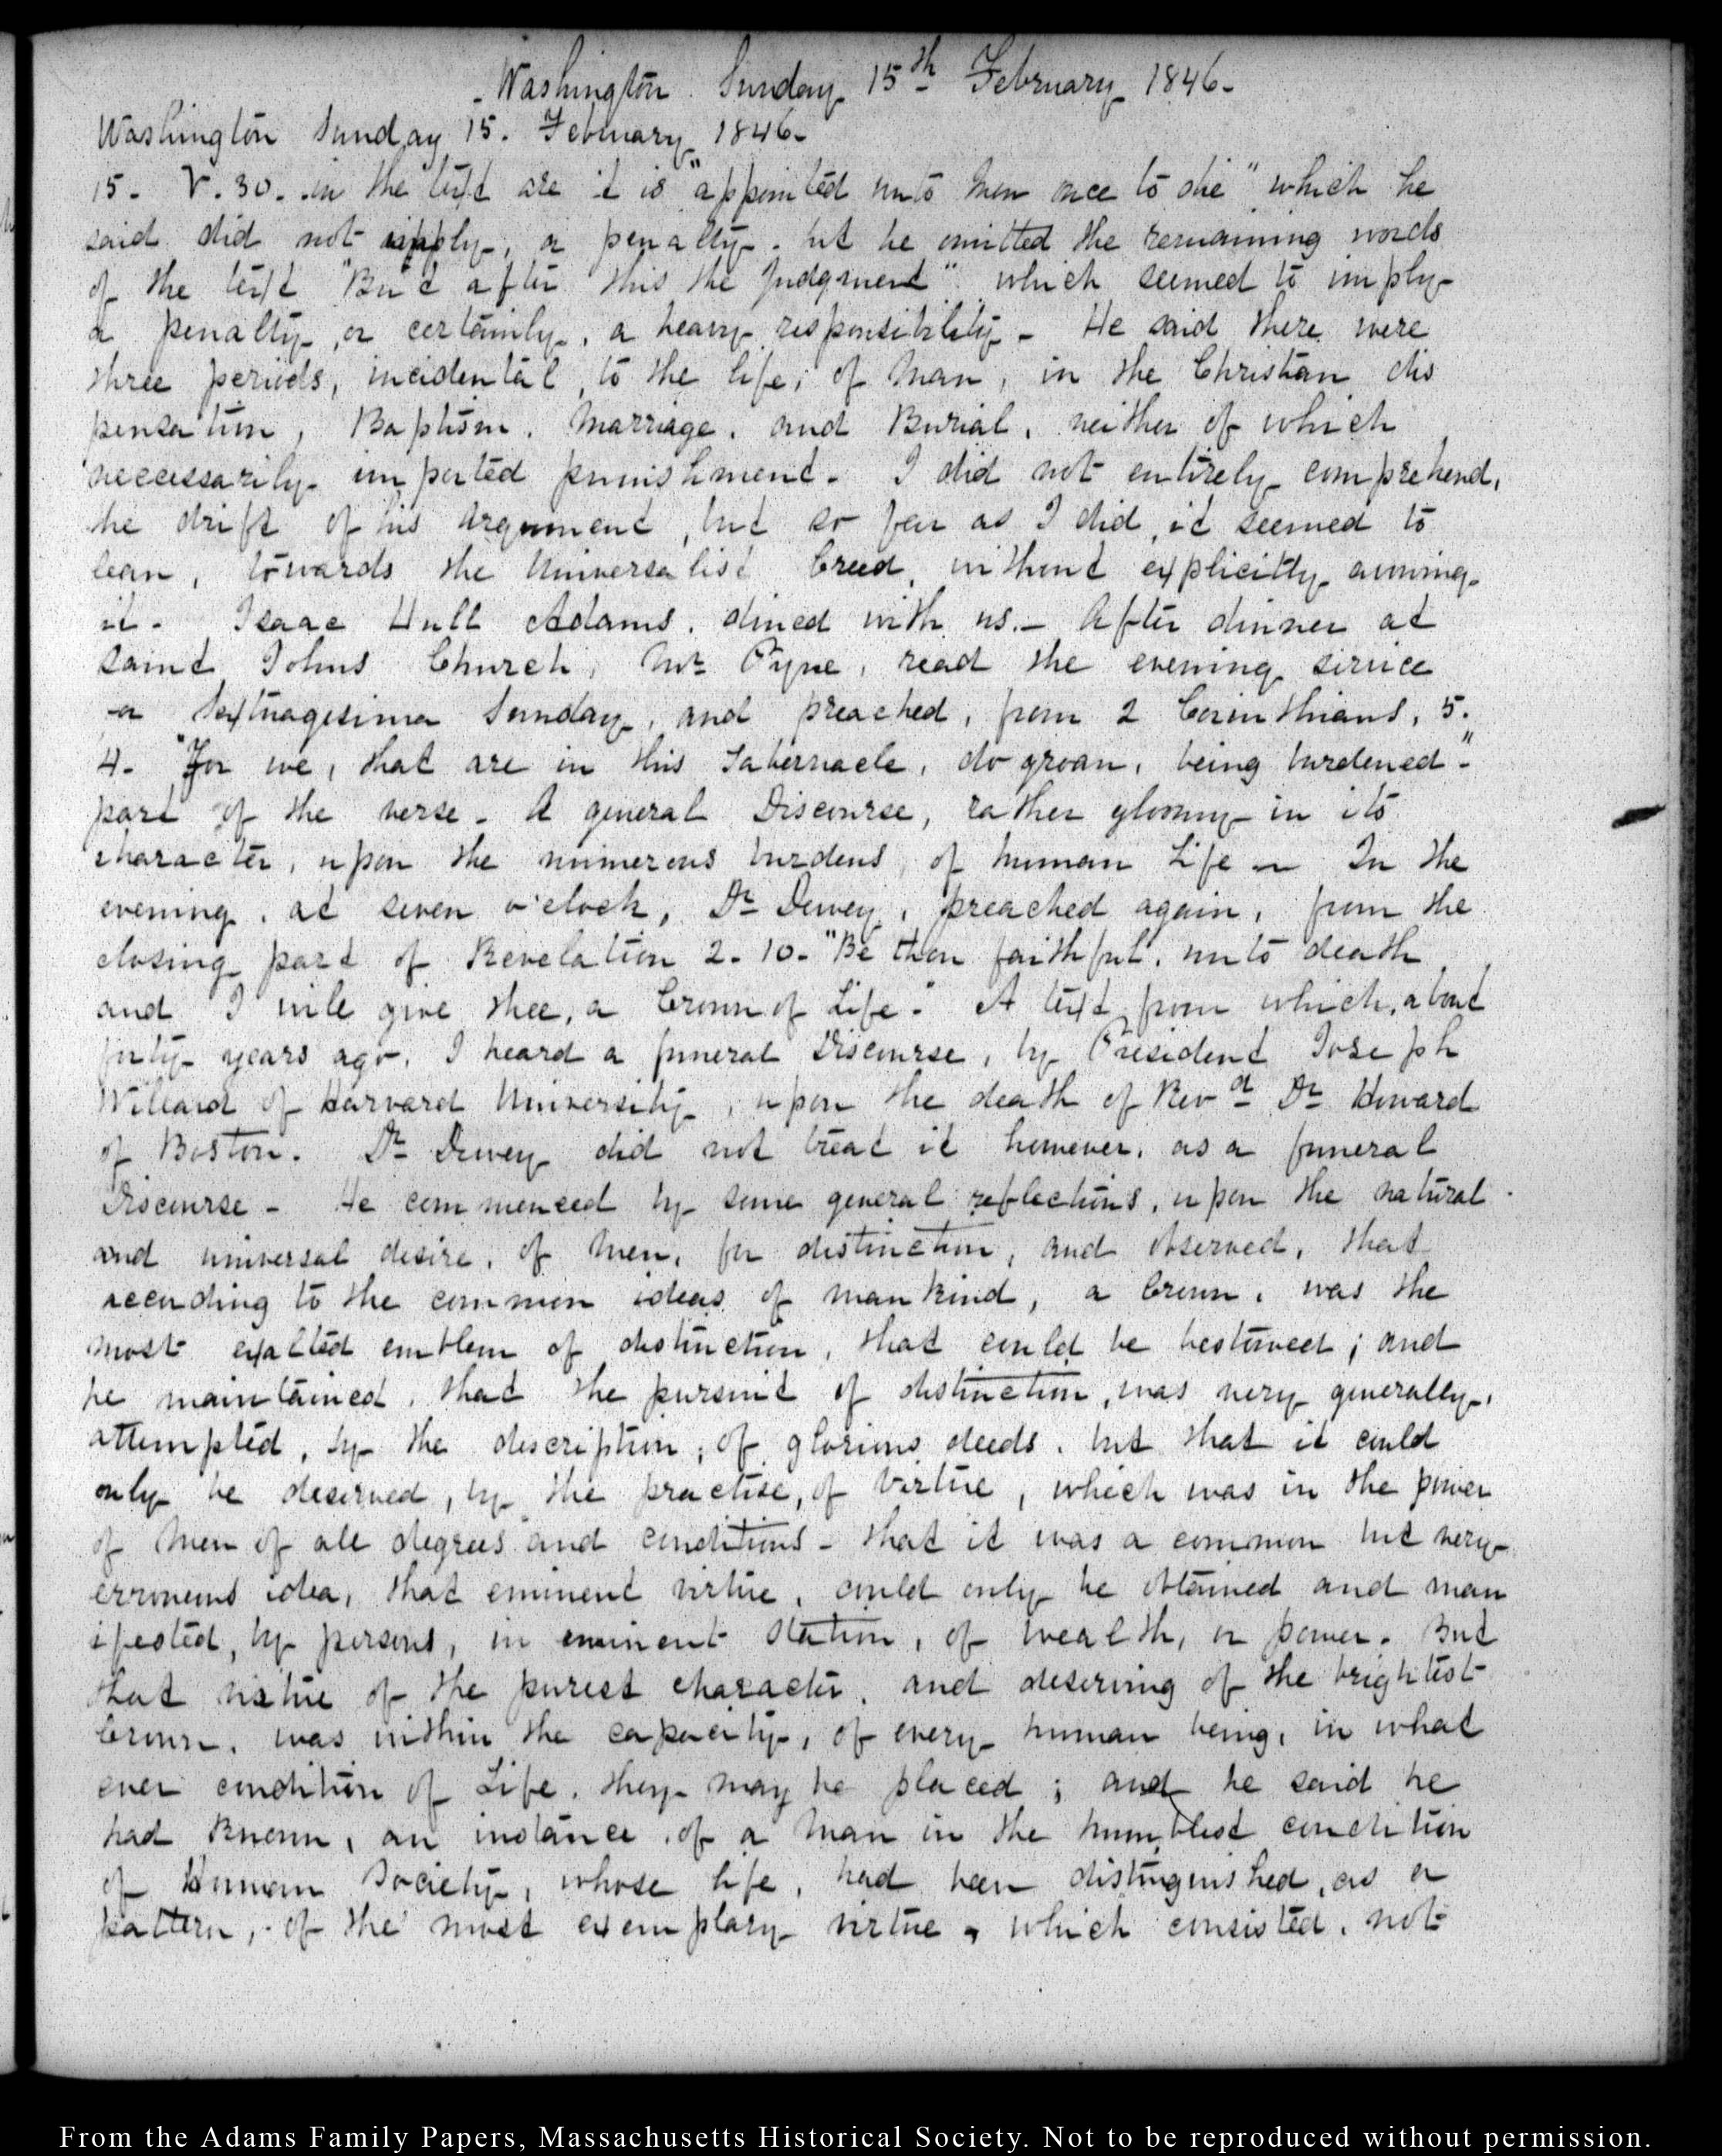 Washington Sunday 15th February 1846-
Washington Sunday 15. February 1846-
15- V. 30. in the text are it is "appointed unto Men once to die" which he
said did not imply, a penalty- but he omitted the remaining words
of the text "But after this the Judgment" which seemed to imply
a penalty, or certainly, a heavy responsibility- He said there were
three periods, incidental, to the life, of Man, in the Christian dis
pensation, Baptism, Marriage, and Burial, neither of which
necessarily imported punishment- I did not entirely comprehend,
the drift of his argument, but so far as I did, it seemed to
lean, towards the Universalist Creed, without explicitly avowing
it- Isaac Hull Adams, dined with us.- After dinner at
Saint Johns Church, Mr Pyne, read the evening service
a Septuagesima Sunday, and preached, from 2 Corinthians, 5.
4. "For we, that are in this Tabernacle, do groan, being burdened-"
part of the verse- A general Discourse, rather gloomy in its
character, upon the numerous burdens, of human Life- In the
evening, at seven o'clock, Dr Dewey, preached again, from the
closing part of Revelation 2. 10. "Be thou faithful, unto death
and I will give thee, a Crown of Life." A text from which, about
forty years ago, I heard a funeral Discourse, by President Joseph
Willard of Harvard University, upon the death of Revd Dr Howard
of Boston. Dr Dewey did not treat it however, as a funeral
Discourse- He commenced by some general reflections, upon the natural
and universal desire, of Men, for distinction, and observed, that
according to the common ideas of mankind, a Crown, was the
most exalted emblem of distinction, that could be bestowed; and
he maintained, that the pursuit of distinction, was very generally,
attempted, by the description, of glorious deeds, but that it could
only be deserved, by the practise, of Virtue, which was in the power
of Men of all degrees and conditions- that it was a common but very
erroneous idea, that eminent virtue, could only be obtained and man
ifested, by persons, in eminent Station, of wealth, or power. But
that virtue of the purest character, and deserving of the brightest
Crown, was within the capacity, of every human being, in what
ever condition of Life, they may be placed; and he said he
had known, an instance, of a Man in the humblest condition
of Human Society, whose life, had been distinguished, as a
pattern, of the most exemplary virtue, which consisted, not
From the Adams Family Papers, Massachusetts Historical Society. Not to be reproduced without permission.